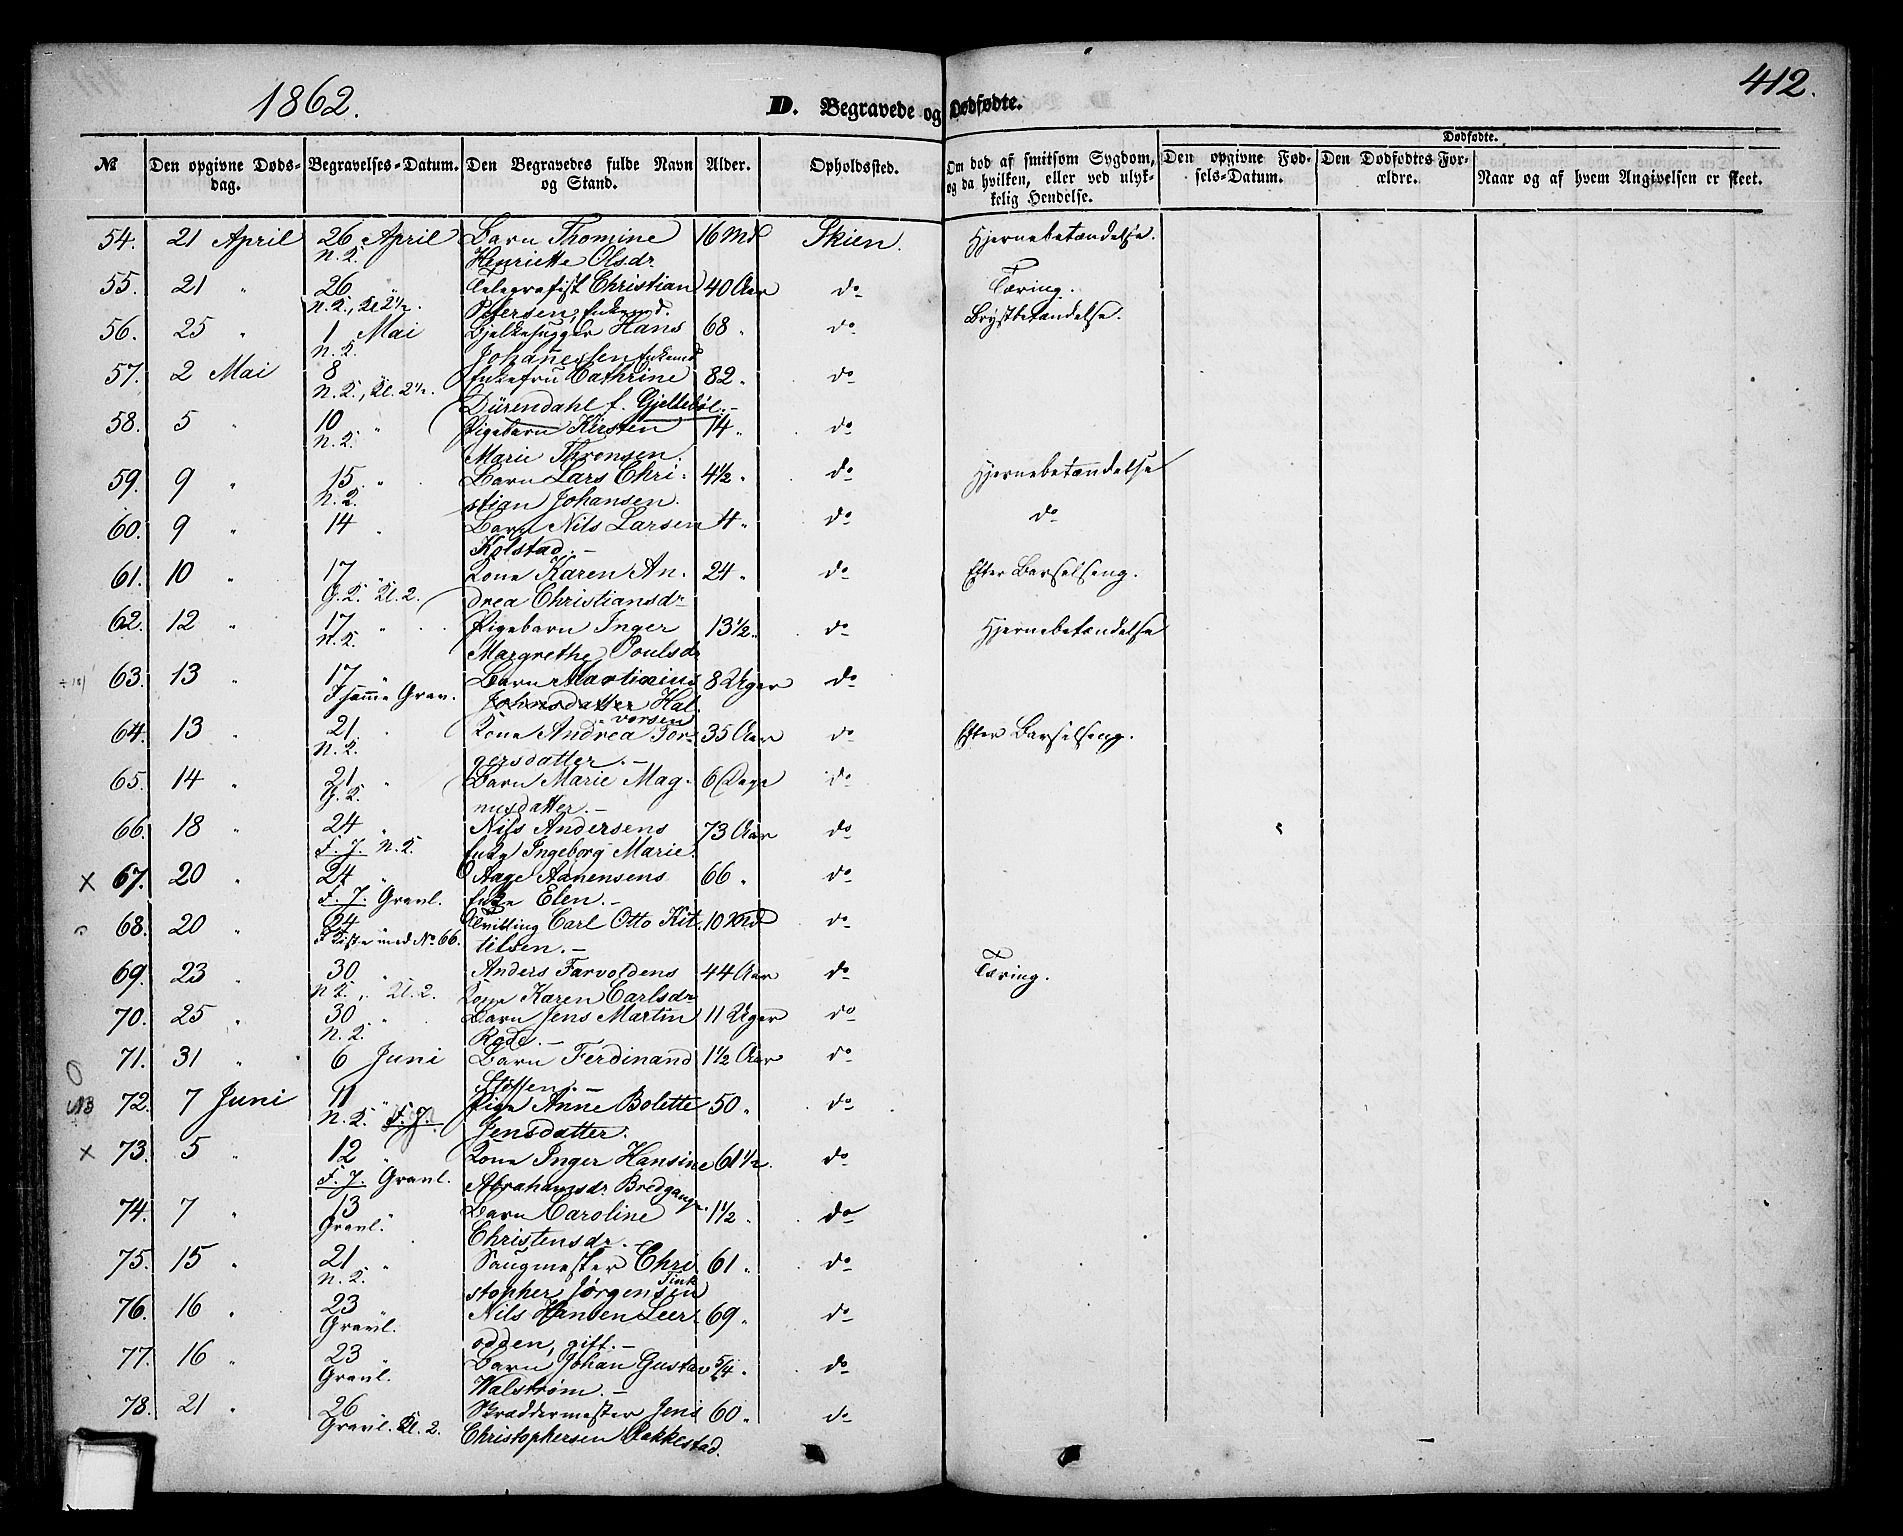 1862.
D. Begravede og Dødfødte.
412.
Dødfødte.
№ Den opgivne Døds- Begravelses-Datum. Den Begravedes fulde Navn Alder. Opholdssted. Om død af smitsom Sygdom, Den opgivne Fød- Den Dødfødtes For- Naar og af hvem Angivelsen er skeet.
dag. og Stand. og da hvilken, eller ved ulyk- sels-Datum. ældre.
kelig Hendelse.
54. 21 April 26 April Barn Thomine 16 Md Skien. Hjernebetændelse.
N. K. Henriette Olsdr
55. 21 " 26 " Telegrafist Christian 40 Aar do Tæring.
N. K., Kl 2½. Petersen, Enkemd.
56. 25 " 1 Mai Bjelkehugger Hans 68 " do Brystbetændelse.
N. K. Johannesen Enkemd
57. 2 Mai 8 " Enkefru Cathrine 82 " do
N. K., Kl. 2½. Dürendahl f. Gjeltebøl.-
58. 5 " 10 " Pigebarn Kirsten 14 " do
N. K. Marie Thronsen.
59. 9 " 15 " Barn Lars Chri- 4½ " do Hjernebetændelse
N. K. stian Johansen.
60. 9 " 14 " Barn Nils Larsen 4 " do do
Kolstad.-
61. 10 " 17 " Kone Karen An- 24 " do Efter Barselseng.
G. K. Kl. 2. drea Christiansdr
62. 12 " 17 " Pigebarn Inger 13½ " do Hjernebetændelse
N. K. Margrethe Poulsdr
63. 13 " 17 " Barn Martinius 8 Uger do
I samme Grav. Johnsdatter Hal-
vorsen
64. 13 " 21 " Kone Andrea Tor- 35 Aar do Efter Barselseng.
N. K. gersdatter.-
65. 14 " 21 " Barn Marie Mag- 6 Dage do
G. K. nusdatter.-
66. 18 " 24 " Nils Andersens 73 Aar do
F. J. N. K. Enke Ingeborg Marie.
× 67. 20 " 24 " Aage Aanensens 66 " do
F. J. Gravl. Enke Elen.-
68. 20 " 24 " Tvilling Carl Otto Kit- 10 Md do
I Kiste med No 66. tilsen.-
69. 23 " 30 " Anders Farvoldens 44 Aar do Tæring.
N K., Kl. 2. Kone Karen Carlsdr
70. 25 " 30 " Barn Jens Martin 11 Uger do
N. K. Rode.-
71. 31 " 6 Juni Barn Ferdinand 1½ Aar do
Steffens.-
NB 72. 7 Juni 11 " Pige Anne Bolette 50 " do
N. K. F. J. Jensdatter.
× 73. 5 " 12 " Kone Inger Hansine 61½ " do
F. J. Gravl. Abrahamsdr Bredgang.
74. 7 " 13 " Barn Caroline 1½ " do
Gravl. Christensdr.-
75. 15 " 21 " Saugmester Chri- 61 " do
N. K. stopher Jørgensen Tink
76. 16 " 23 " Nils Hansen Leer- 69 " do
Gravl. odden, gift.-
77. 16 " 23 " Barn Johan Gustav 5/4 " do
Gravl. Walstrøm.-
78. 21 " 26 " Skræddermester Jens 60 " do
Gravl. Kl. 2. Christophersen Bakkestad.